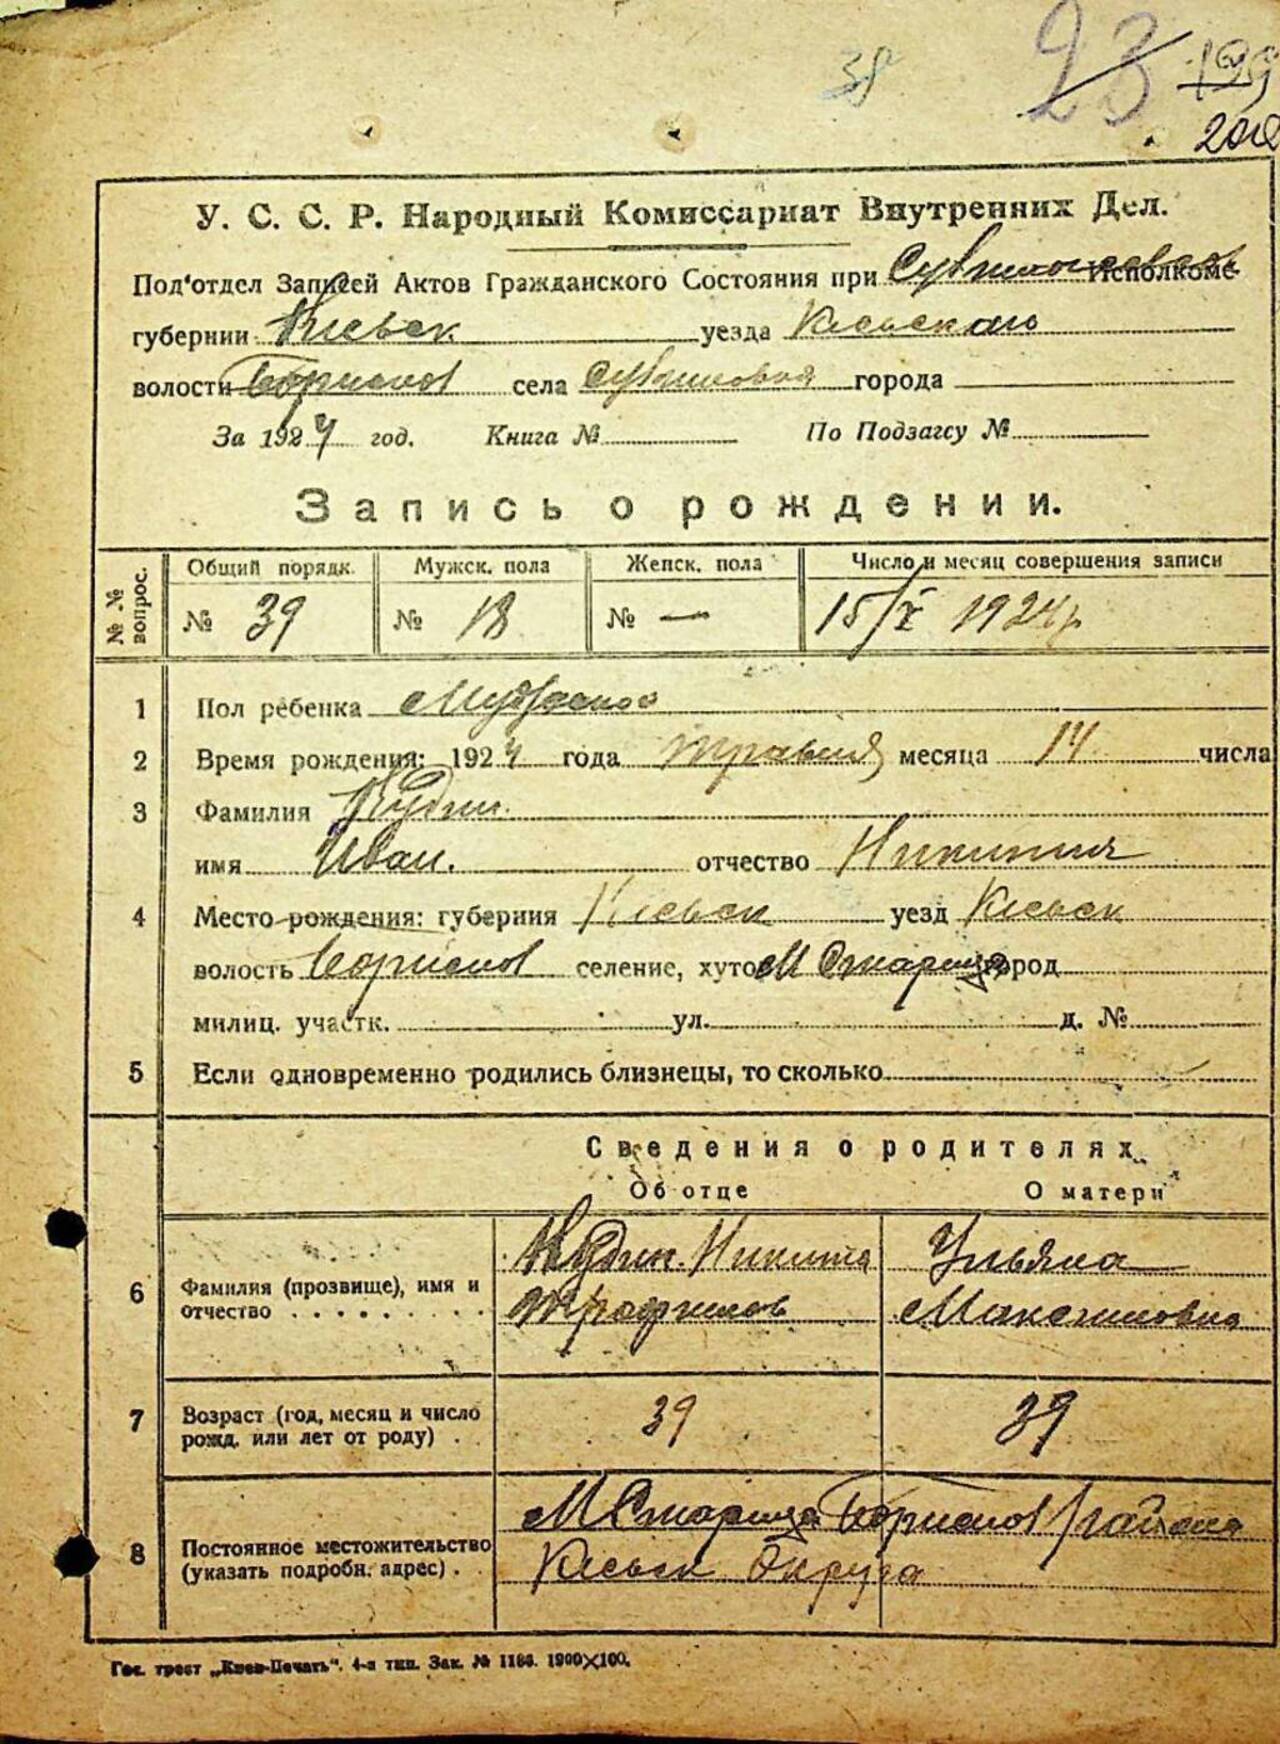 38 23 199
202
У. С. С. Р. Народный Комиссариат Внутренних Дел.
Под'отдел Записей Актов Гражданского Состояния при Исполкоме
губернии Киевск уезда Киевского
волости Бориспол села города
За 1924 год. Книга № По Подзагсу №
Запись о рождении.
№ № вопрос. Общий порядк. Мужск. пола Женск. пола Число и месяц совершения записи
№ 39 № 18 № — 15/V 1924 р
1 Пол ребенка
2 Время рождения: 1924 года травня месяца 14 числа
3 Фамилия Кудин
имя Иван. отчество
4 Место рождения: губерния Киевск уезд Киевск
волость Бориспол селение, хутор М Старица город
милиц. участк. ул. д. №
5 Если одновременно родились близнецы, то сколько
Сведения о родителях
Об отце О матери
6 Фамилия (прозвище), имя и отчество Кудин Никита Ульяна
Трофимов Максимовна
7 Возраст (год, месяц и число рожд. или лет от роду) 39 39
8 Постоянное местожительство (указать подробн. адрес) М Старица Бориспол района
Киевск Округа
Гос. трест „Киев-Печать“. 4-я тип. Зак. № 1186. 1900×100.